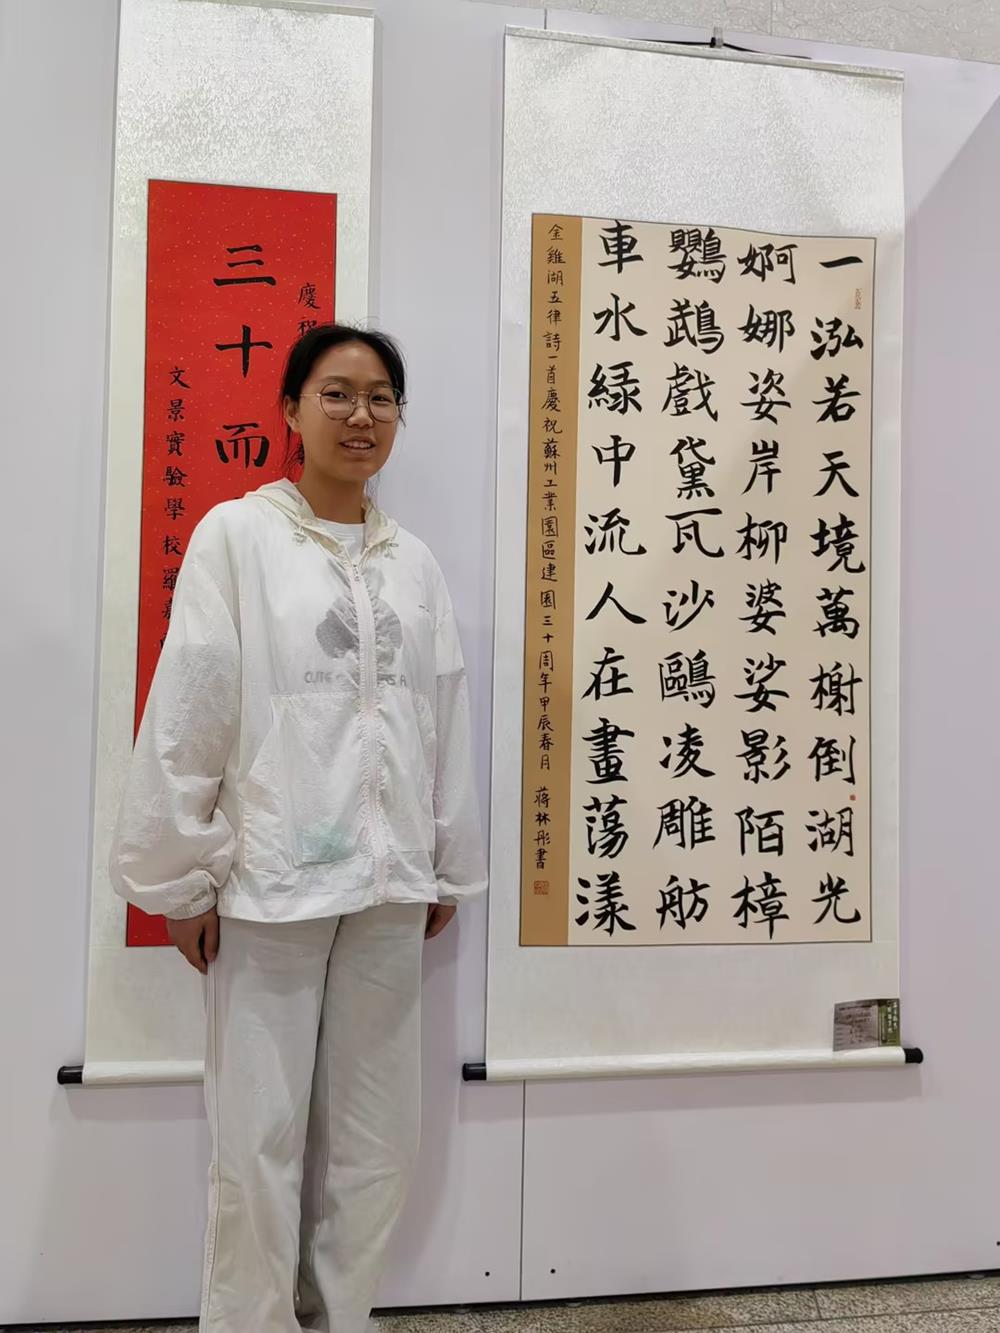 一泓若天境萬榭倒湖光
婀娜姿岸柳婆娑影陌樟
鸚鵡戲黛瓦沙鷗凌雕舫
車水緑中流人在畫蕩漾
金雞湖五律詩一首慶祝蘇州工業園區建園三十周年甲辰春月 蒋林彤書
慶祝
三十而
文景實驗學校羅嘉